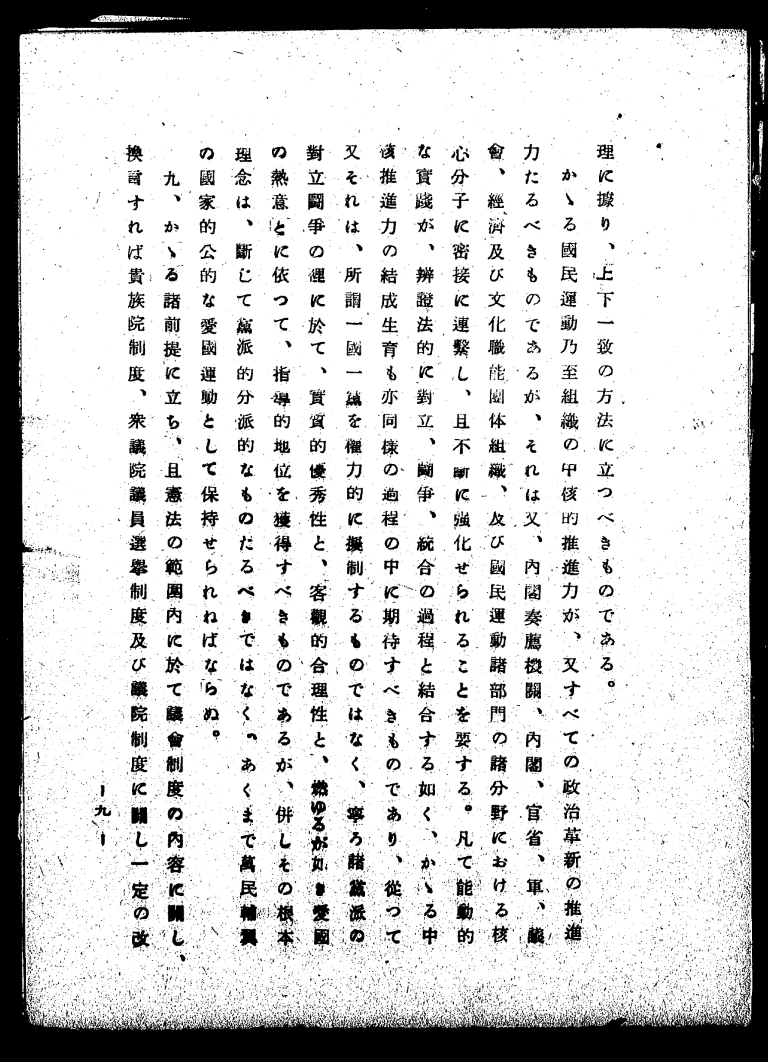 理に據り、上下一致の方法に立つべきものである。
かゝる國民運動乃至組織の中核的推進力が、又すべての政治革新の推進
力たるべきものであるが、それは又、內閣奏薦機關、內閣、官省、軍、議
會、經濟及び文化職能團体組織、及び國民運動諸部門の諸分野における核
心分子に密接に連繫し、且不斷に强化せられることを要する。凡て能動的
な實踐が、辨證法的に對立、鬪爭、統合の過程と結合する如く、かゝる中
核推進力の結成生育も亦同樣の過程の中に期待すべきものであり、從つて
又それは、所謂一國一黨を權力的に擬制するものではなく、寧ろ諸黨派の
對立鬪爭の裡に於て、實質的優秀性と、客觀的合理性と、燃ゆるが如き愛國
の熱意とに依つて、指導的地位を獲得すべきものであるが、併しその根本
理念は、斷じて黨派的分派的なものたるべきではなく、あくまで萬民輔翼
の國家的公的な愛國運動として保持せられねばならぬ。
九、かゝる諸前提に立ち、且憲法の範圍內に於て議會制度の內容に關し、
換言すれば貴族院制度、衆議院議員選擧制度及び議院制度に關し一定の改
―九―